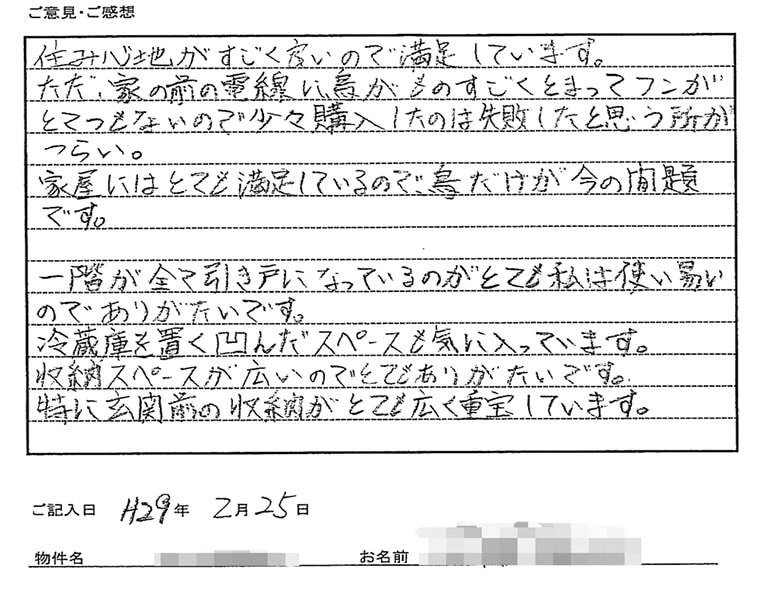 ご意見・ご感想
住み心地がすごく良いので満足しています。
ただ、家の前の電線に鳥がものすごくとまってフンが
とてつもないので少々購入したのは失敗したと思う所が
つらい。
家屋にはとても満足しているので、鳥だけが今の問題
です。
一階が全て引き戸になっているのがとても私は使い易い
のでありがたいです。
冷蔵庫を置く凹んだスペースも気に入っています。
収納スペースが広いのでとてもありがたいです。
特に玄関前の収納がとても広く重宝しています。
ご記入日 H29年 2月25日
物件名 お名前